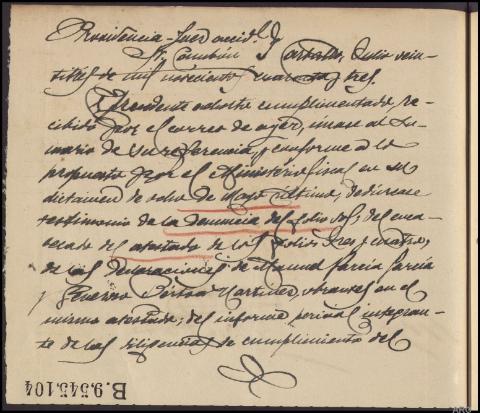 Providencia-Juez accidl.
Sr. Cambón Carballo, Julio vein-
titrés de mil novecientos cuarenta y tres.
El precedente exhorto cumplimentado, re-
cibido por el correo de ayer, únase al su-
mario de su referencia, y conforme a lo
propuesto por el Ministerio fiscal en su
dictamen de ocho de Mayo último, dedúzcase
testimonio de la denuncia del folio dos; del
del atestado de los folios tres y cuatro,
de las declaraciones de Manuel García García
y Martínez, obrantes en el
mismo atestado; del informe pericial integran-
te de las diligencias de cumplimiento del
B.9.545.104